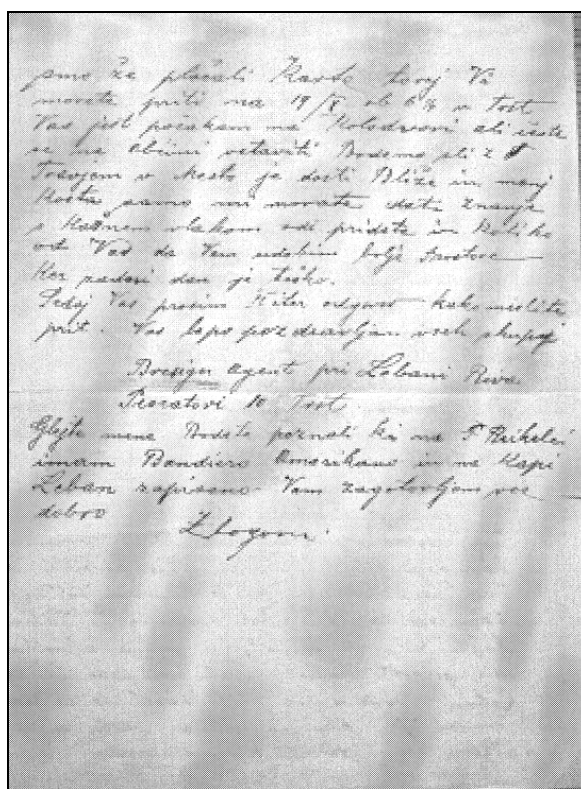 smo že plačali Karte torej Vi
morate priti na 19/X ob 6 ½ v Trst
Vas jest počakam na Kolodvori ali časte
se na obćini vstaviti Bodemo šli z
v Mesto je dosti Bliže in manj
Košta samo mi morate dati znanje
s Kašnem vlakom pridete in Koliko
od Vas da Vam udobim bolje
Ker zadni dan je težko.
Sedaj Vas prosim Hiter odgovor kako mislite
prit. Vas lepo pozdravljam vseh skupaj
agent pri Lebani Riva
10 Trst.
Glejte mene Bodete poznali ki na
imam Bandiero Amerikano in na Kapi
Leban zapisano Vam zagotovljem vse
dobro
Zbogom.